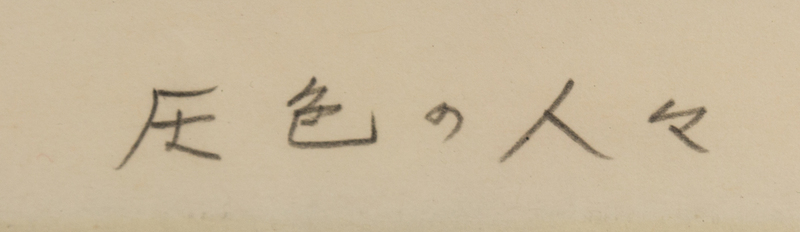 灰色の人々